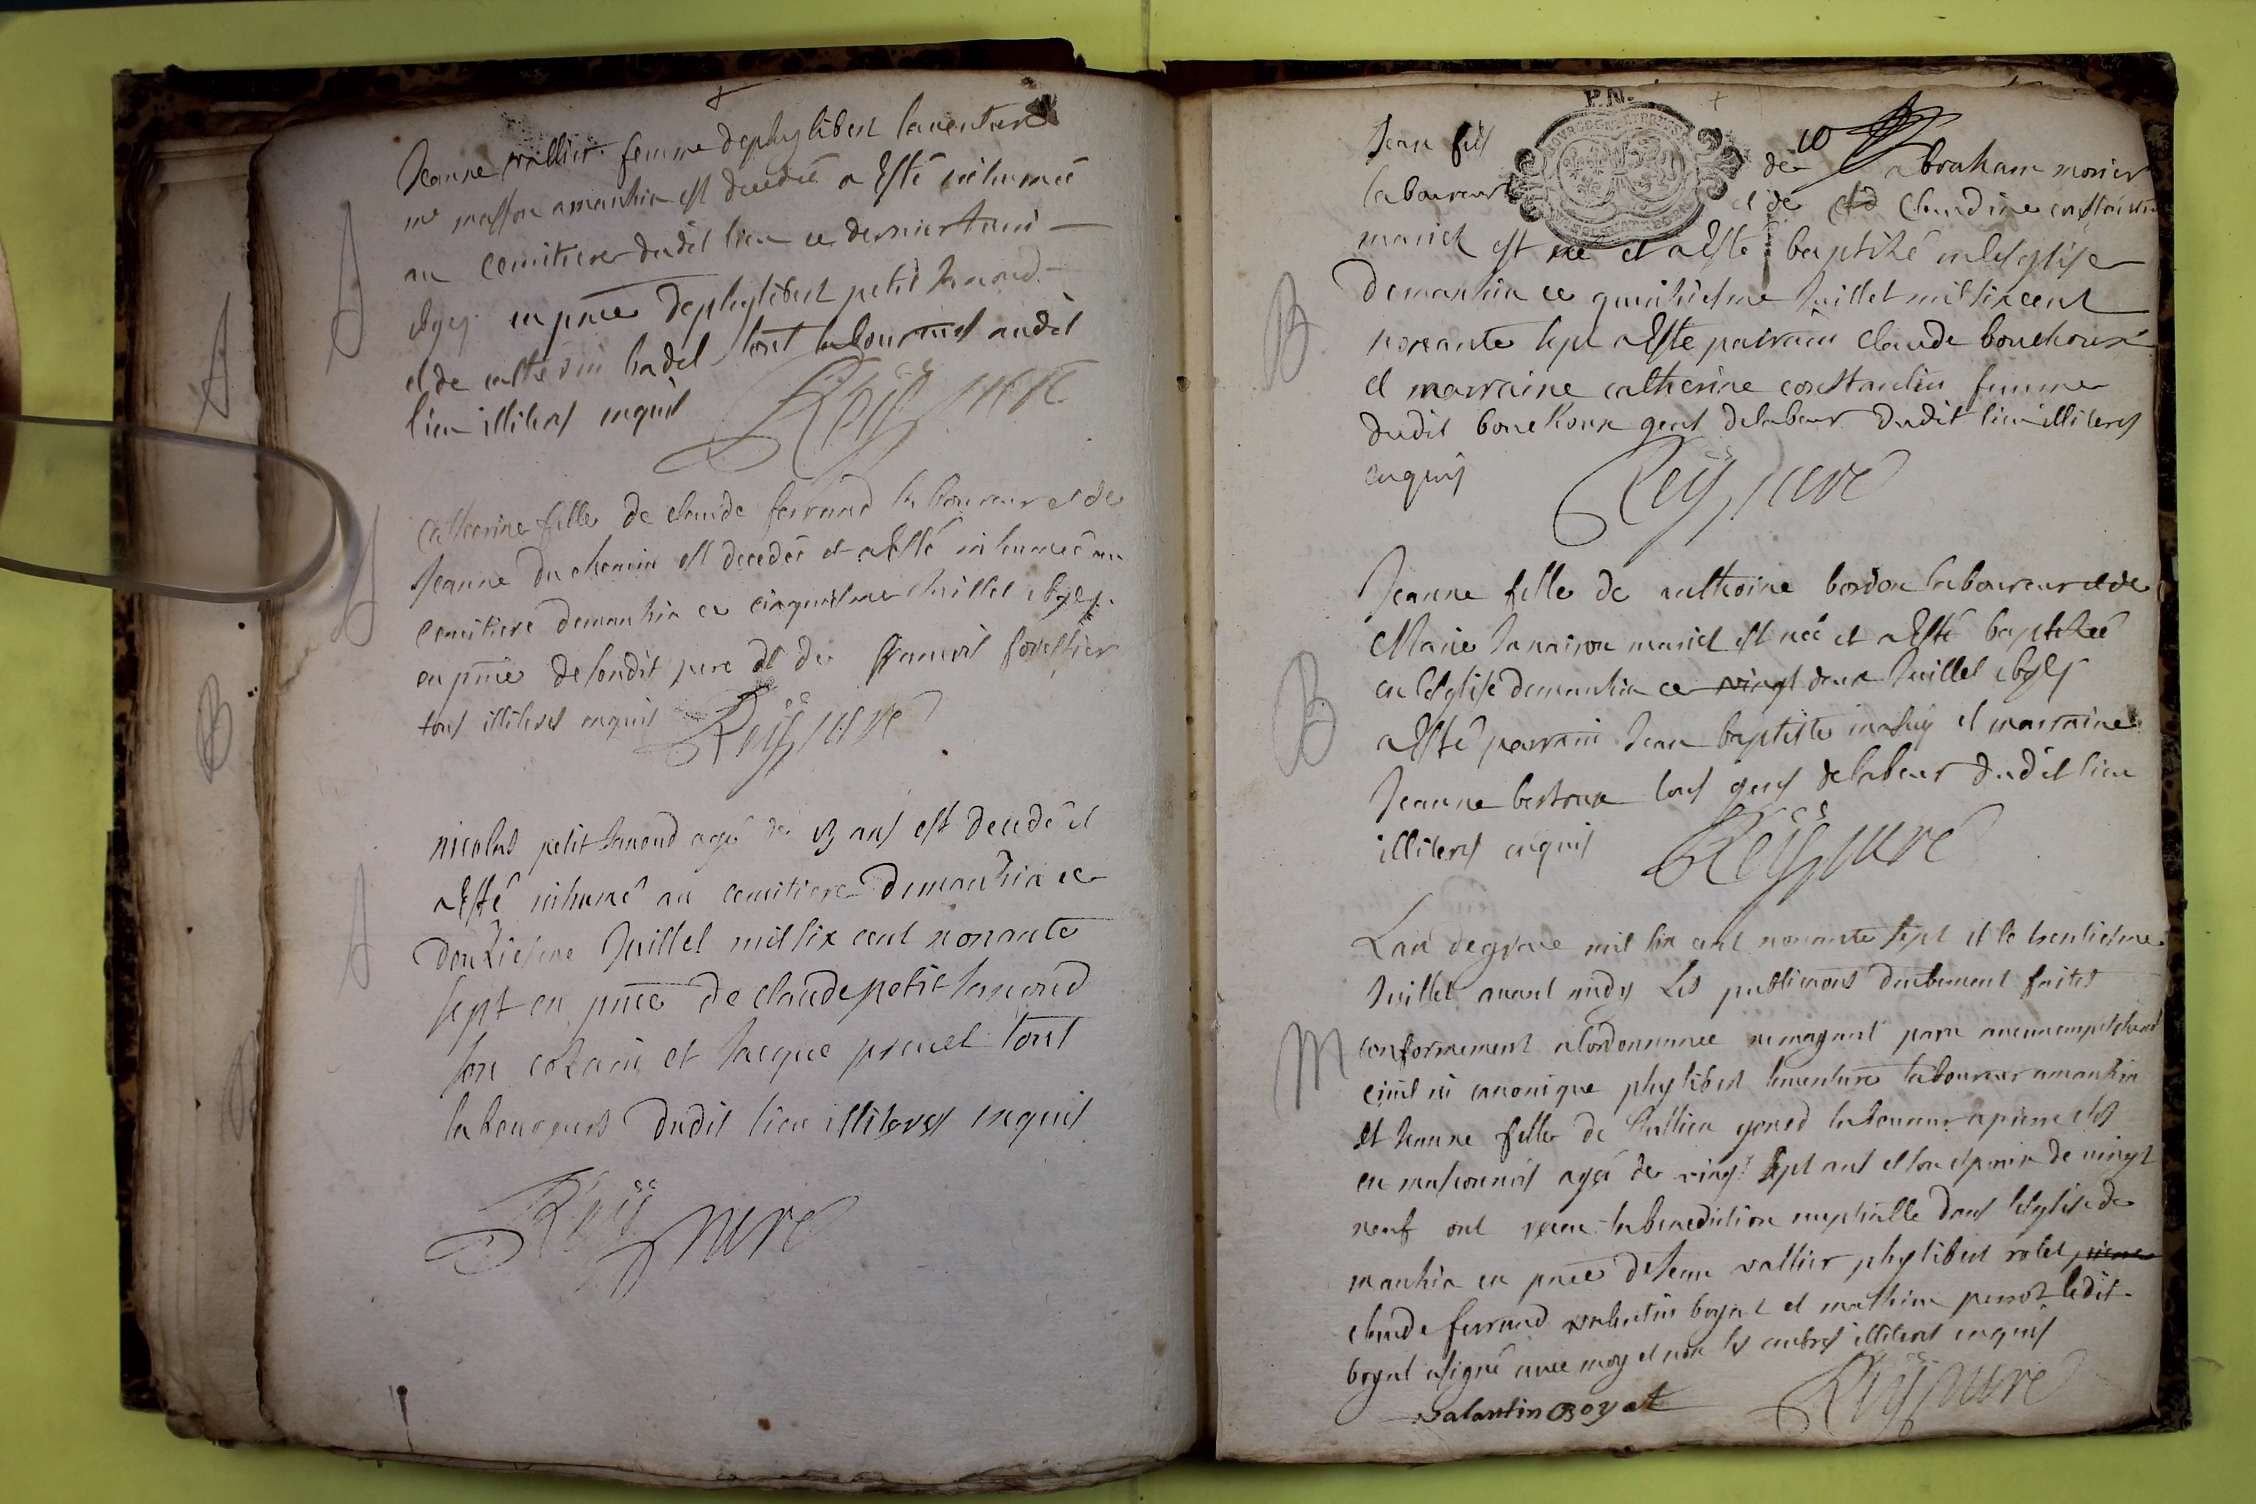 Jeanne vallier femme de phylibert laventure
me masson a manhia est decedeé a Esté inhumeé
au cemitiere dudit lieu ce dernier Juin
en pnce de phylibert petit Janond
et de catherin badel tout laboureurs audit
lieu illiteres enquis
Reÿ curé
A
Catherine fille de claude ferrand laboureur et de
Jeanne du chemin est decedeé et a Esté inhumeé au
cemitiere de manhia ce cinquiesme Juillet
en pnce de sondit pere et de forestier
tous illiteres enquis
Reÿ curé
A
nicolas petit Janond agé de ans est decedé et
a Esté inhumé au cemitiere de manhia ce
douziesme Juillet mil six cent nonante
sept en pnce de claude petit Janond
son cozain et Jacque tout
laboureurs dudit lieu illiteres enquis
Reÿ curé
A
B
P.N.
10
Jean fils de abraham monier
laboureur et de Claudine constantin
mariez est né et a Esté baptizé en lesglise
de manhia ce quinziesme Juillet mil six cent
nonante sept a Esté parrain Claude bouchoux
et marraine catherine constantin femme
dudit bouchoux gens de labeur dudit lieu illiteres
enquis
Reÿ curé
B
Jeanne fille de anthoine bordon laboureur et de
Marie mariez est neé et a Esté baptizeé
en lesglise de manhia ce vingt deux Juillet
a Esté parrain Jean baptiste et marraine
Jeanne tous gens de labeur dudit lieu
illiteres enquis
Reÿ curé
B
Lan de grace mil six cent nonante sept et le trentiesme
Juillet avant midy Les publications duëment faites
conformement a lordonnance ne ayant paru aucun empeschement
civil ni canonique phylibert laventure laboureur a manhia
et Jeanne fille de laboureur a pierre clos
en masconnois agé de vingt sept ans et son espoux de vingt
neuf ont receu la benediction nuptialle dans lesglise de
manhia en pnce de Jean vallier phylibert rolet
claude ferrand valentin boyat et mathieu perroz ledit
boyat a signé avec moy et non les autres illiteres enquis
M
valantin Boyat
Reÿ curé